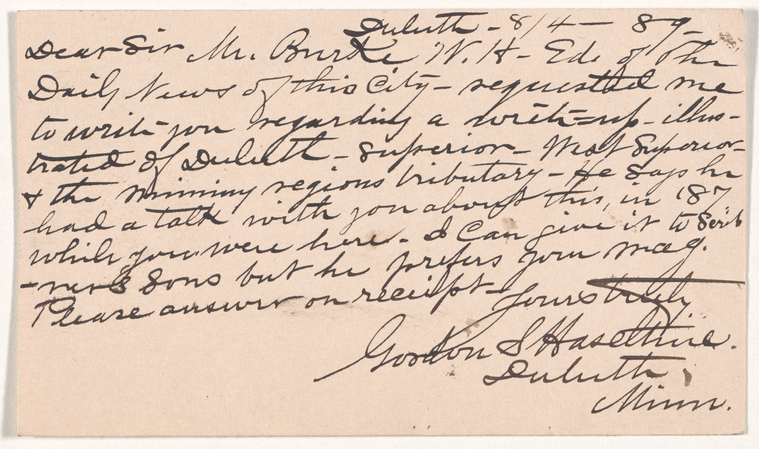 Duluth - 8/4 - 89
Dear Sir Mr. Burke W. H - Ed. of the
Daily News of this City - requested me
to write you regarding a write-up - illus-
trated of Duluth - Superior - West Superior
& the minning regions tributary - He Says he
had a talk with you about this, in '87
while you were here - I Can give it to Scrib
-ner & Sons but he prefers your mag.
Please answer on receipt -
Yours truly
Gordon S Haseltine.
Duluth,
Minn.